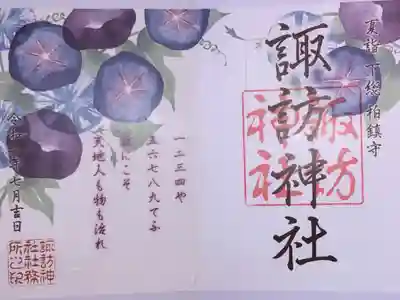 夏詣 下総柏鎮守
諏訪神社
諏訪神社
一二三四や
五六七八九てふ
にこそ
天地人も物も
令和 年七月吉日
諏訪神社社務所之印